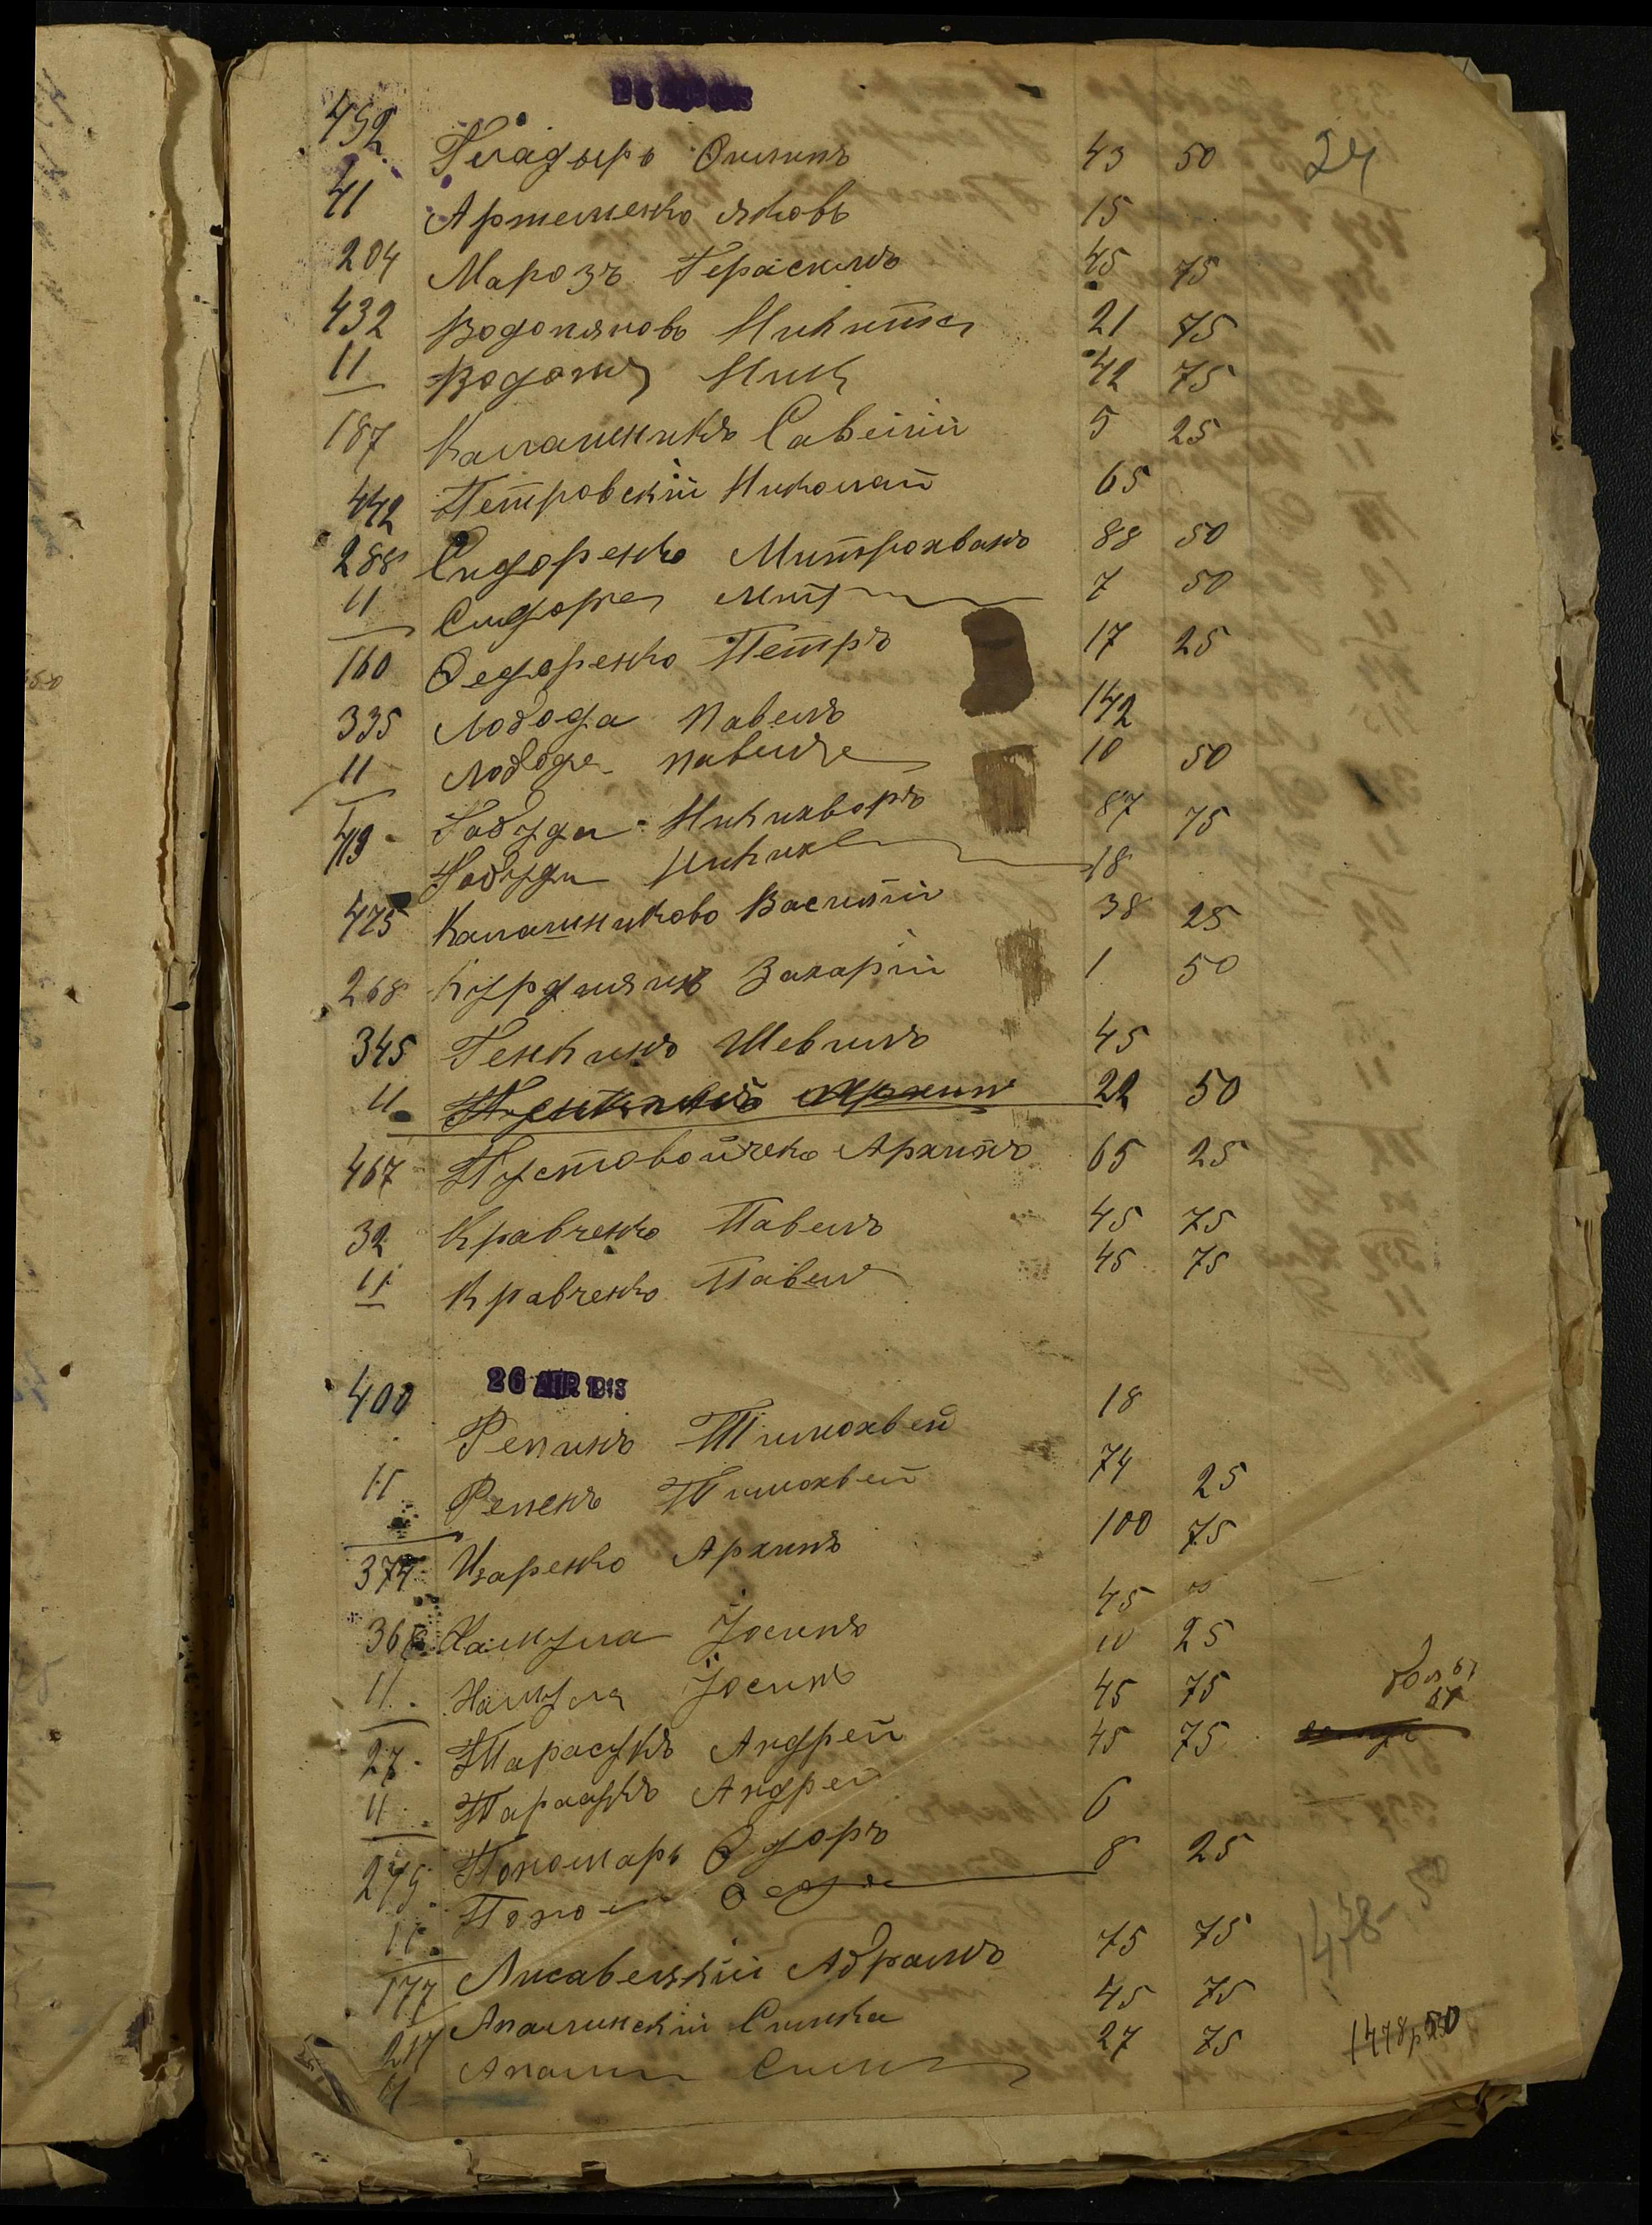 452 Гладырь Осипъ 43 50 24
41 Артеменко Яковъ 15
204 Марозъ Герасимъ 45 75
432 Водопяновъ Никита 21 75
11 Водопя Ник 42 75
187 Калашникъ Савелій 5 25
442 Петровскій Николай 65
288 Сидоренко Митрохванъ 88 50
11 Сидоре Мит 7 50
160 Ѳедоренко Петръ 17 25
335 Лобода Павелъ 142
11 Лобода Павелъ 10 50
49 Габуда Никихворъ 87 75
Габуда Никих 18
475 Калашниково Василій 38 25
268 Курдилянъ Захарій 1 50
345 Генкинъ Шевилъ 45
11 22 50
467 Пустовойченко Архипъ 65 25
32 Кравченко Павелъ 45 75
11 Кравченко Павел 45 75
26 АПР 1913
400 Репинъ Тимохвей 18
11 Репенъ Тимохвей 74 25
374 Изаренко Архипъ 100 75
368 Хамула Іосипъ 45
11 Хамула Іосипъ 10 25
27 Тарасукъ Андрей 45 75
11 Тарасукъ Андрей 45 75
275 Пономарь Ѳдоръ 6
11 Поно Ѳедо 8 25
1478-50
177 Лисавецкій Абрамъ 75 75
217 Апалинскій Симка 45 75
11 Апалин Сим 27 75 1478р50